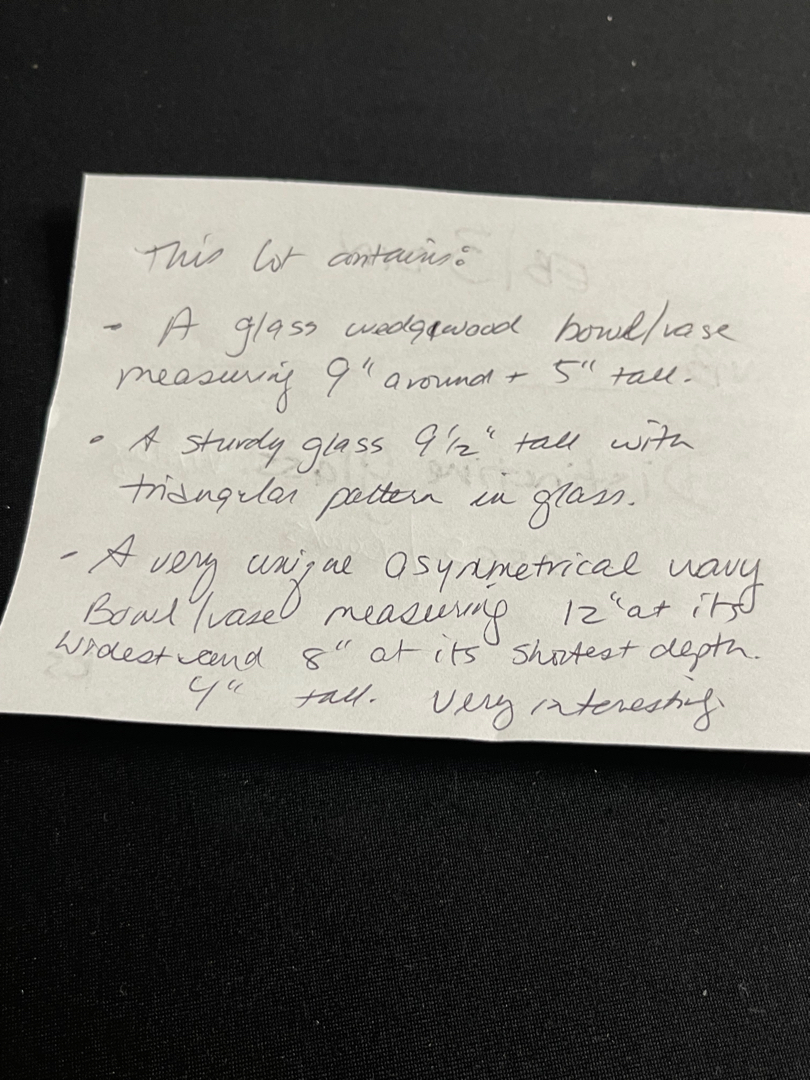 This lot contains:
- A glass wedgewood bowl/vase
measuring 9" around + 5" tall.
• A sturdy glass 9 1/2" tall with
triangular pattern in glass.
- A very unique asymmetrical wavy
Bowl/vase measuring 12" at its
widest and 8" at its shortest depth.
4" tall. Very interesting.